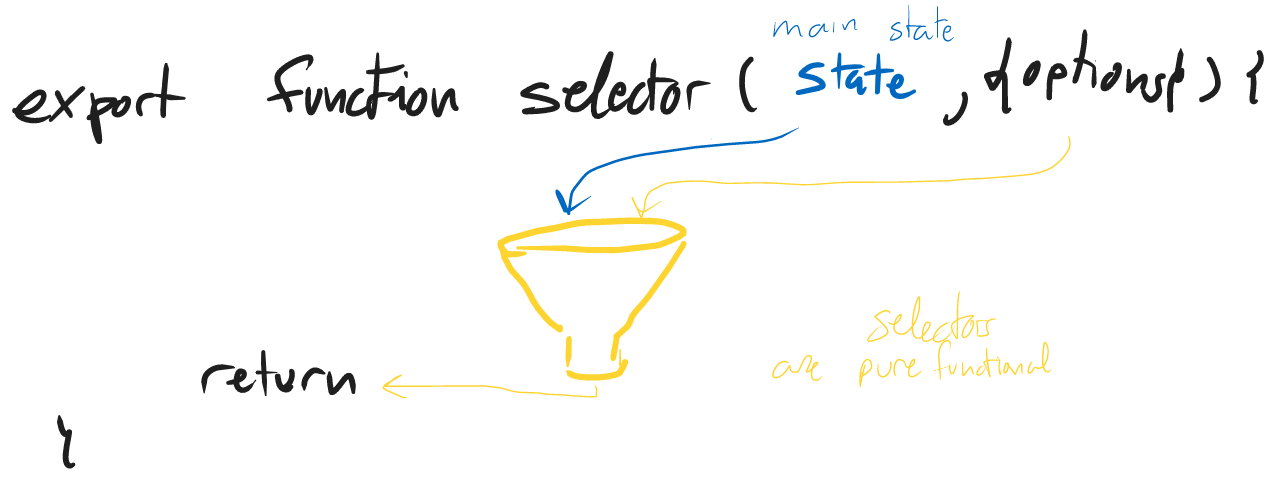 main state
export function selector ( state , {options} ) {
selectors
are pure functional
return
}